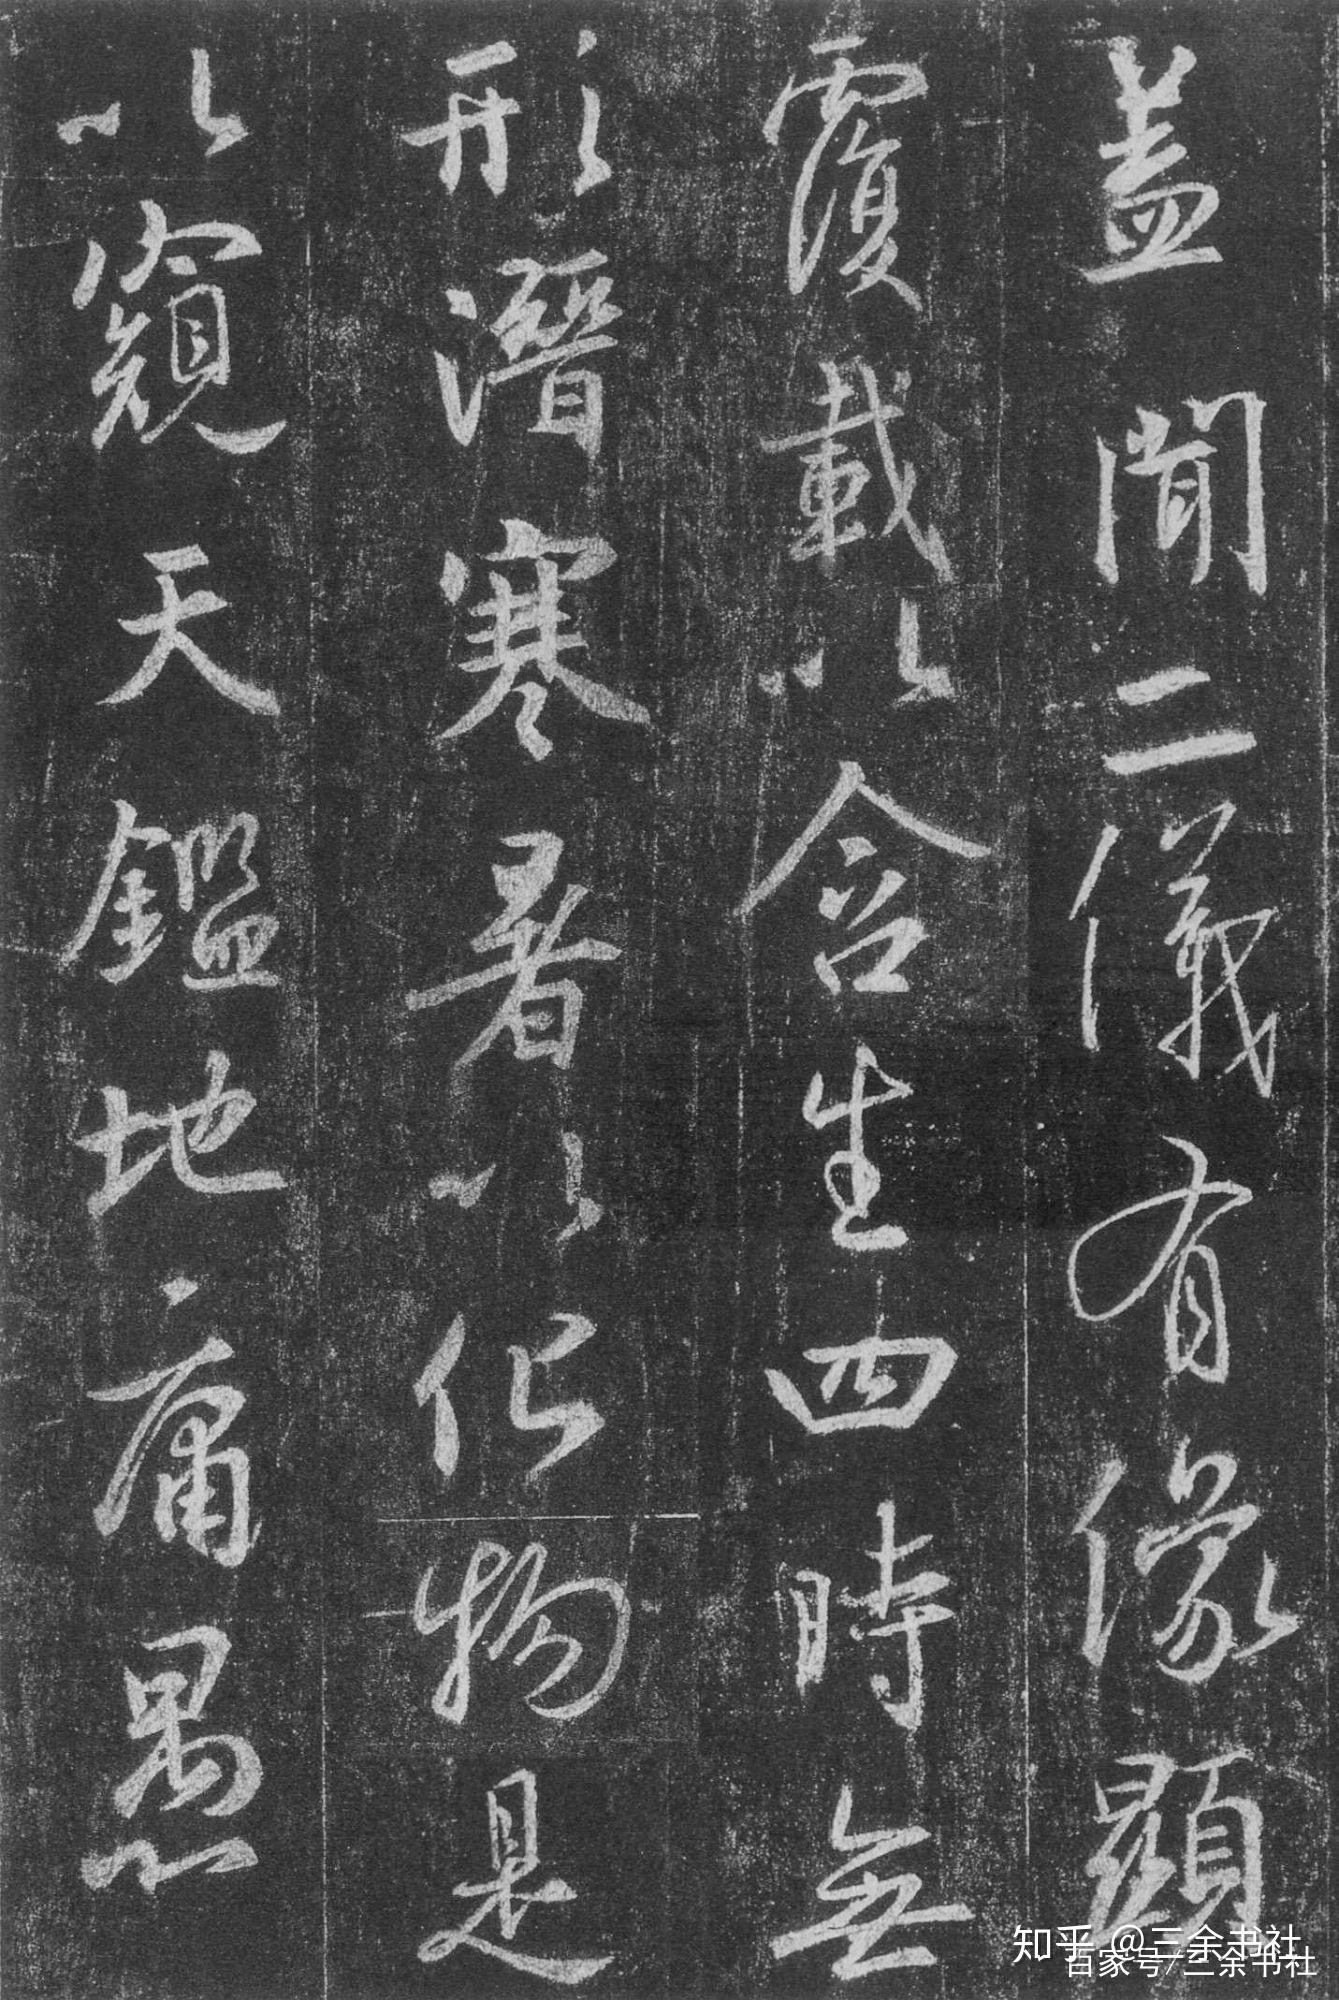 蓋聞二儀有像顯
覆載以含生四時無
形潛寒暑以化物是
以窺天鑑地庸愚
知乎 @三余书社
百家号/三余书社